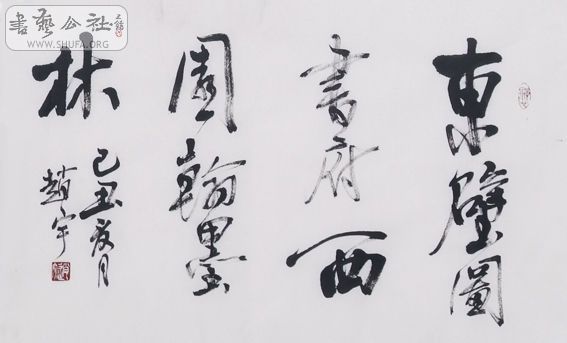 東壁圖
書府西
園翰墨
林
己丑夏月
趙宇
書藝公社
WWW.SHUFA.ORG